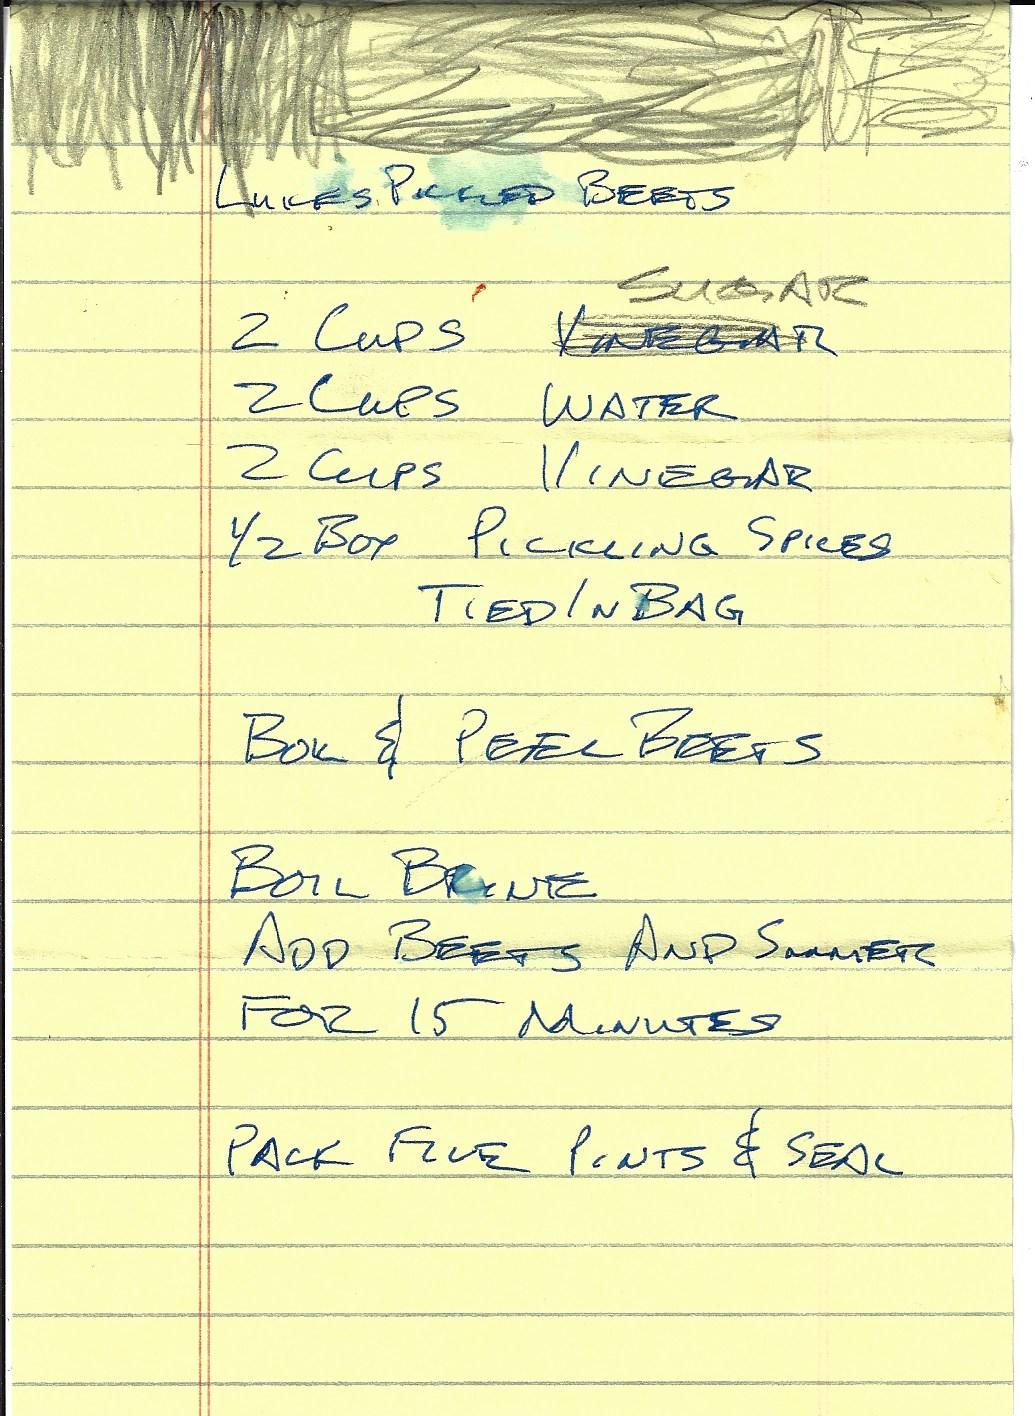 LUKES PICKLED BEETS
SUGAR
2 CUPS VINEGAR
2 CUPS WATER
2 CUPS VINEGAR
1/2 BOX PICKLING SPICES
TIED IN BAG
BOIL & PEEL BEETS
BOIL BRINE
ADD BEETS AND SIMMER
FOR 15 MINUTES
PACK FIVE PINTS & SEAL